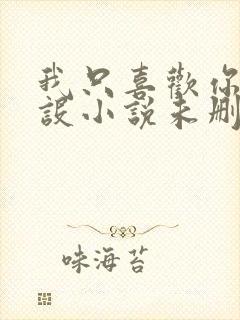 我只喜歡你
設小說未刪
味海苔